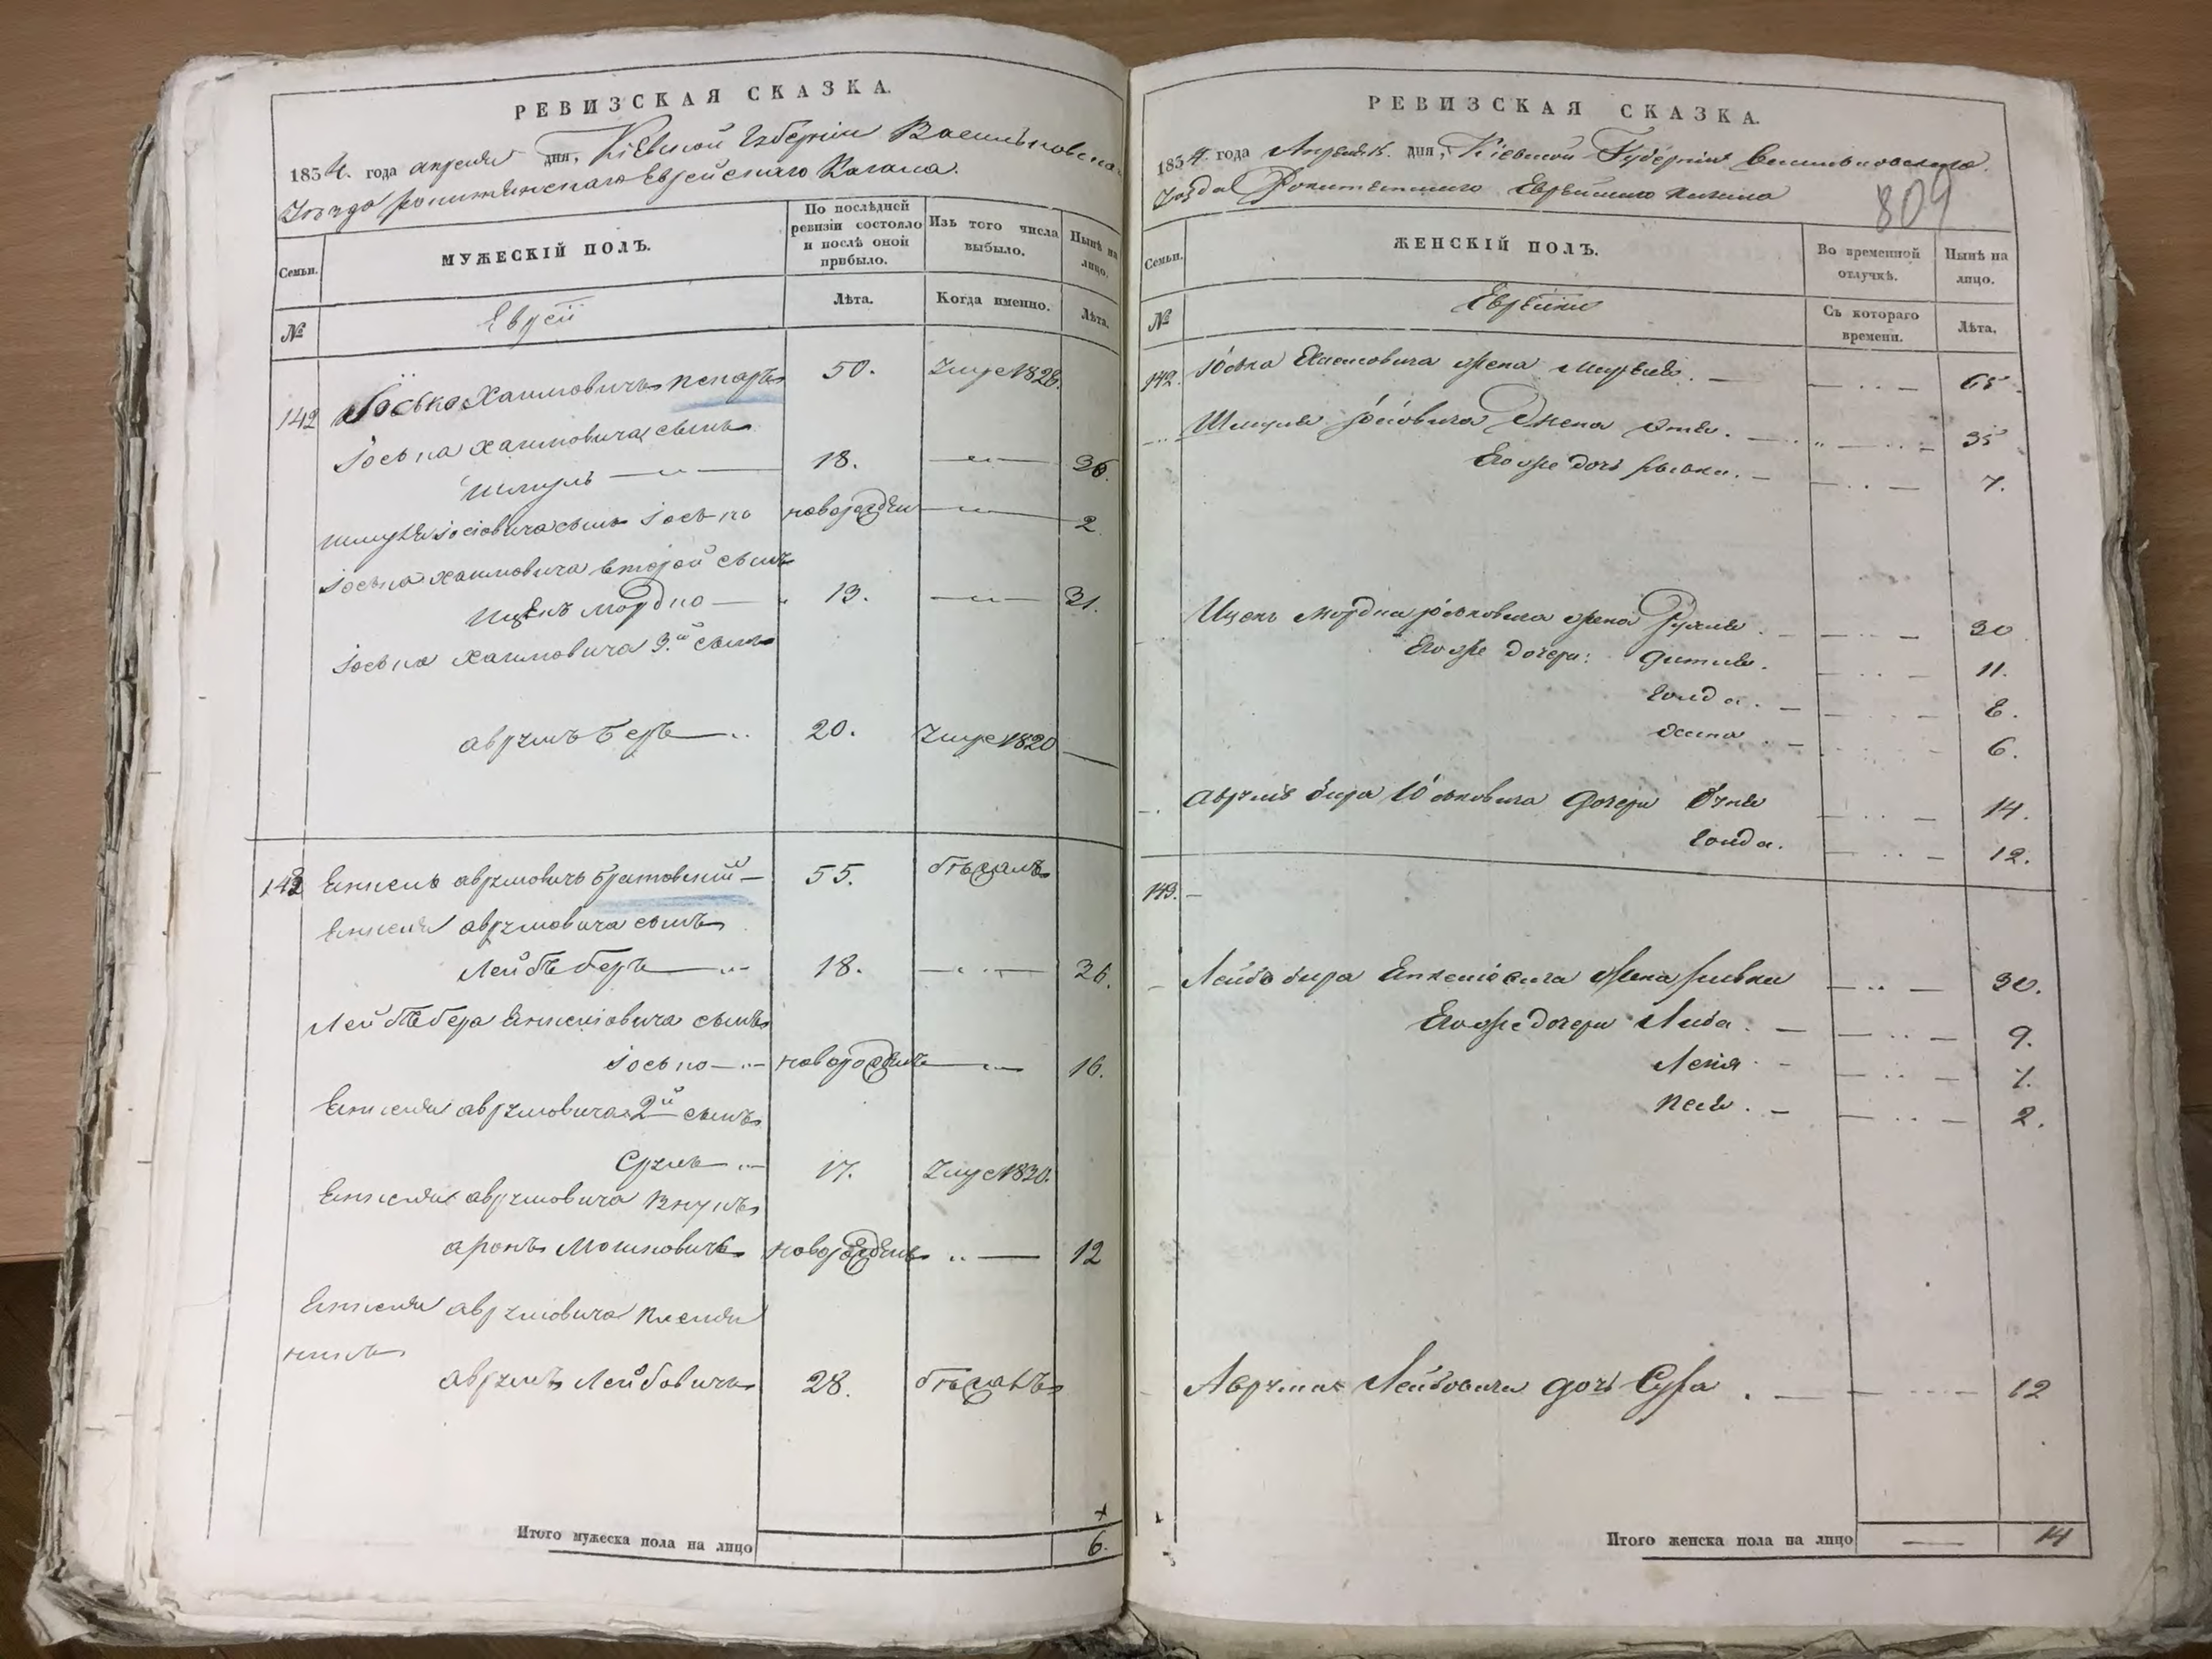 РЕВИЗСКАЯ СКАЗКА.
1854. года апреля дня, Кіевской Губерніи Васильковска.
Уѣзда Рокитянскаго Еврейскаго Кагала.
Семьи.
МУЖЕСКІЙ ПОЛЪ.
По послѣдней ревизіи состояло и послѣ оной прибыло.
Изъ того числа выбыло.
Нынѣ на лицо.
№
Еврей
Лѣта.
Когда именно.
Лѣта.
142 Іосько Хаимовичъ 50. Умре 1826.
Іоська Хаимовича сынъ
Шмуль 18. 36.
Шмуля Іосіовича сынъ Іосько новорожден 2
Іоська Хаимовича второй сынъ
Ицекъ Мордко 13. 31.
Іоська Хаимовича 3.й сынъ
Аврумъ Беръ 20. Умре 1820
143 Енкель Аврумовичъ 55. бѣжалъ
Енкеля Аврумовича сынъ
Лейбъ Беръ 18. 36.
Лейбъ Бера Енкеліовича сынъ
Іосько новорожденъ 16.
Енкеля Аврумовича 2й сынъ
Срулъ 17. Умре 1830.
Енкеля Аврумовича внукъ
Аронъ Мошковичъ новорожденъ 12
Енкеля Аврумовича племян
никъ
Аврумъ Лейбовичъ 28. бѣжалъ
Итого мужеска пола на лицо 6.
РЕВИЗСКАЯ СКАЗКА.
1854. года Апреля. дня, Кіевской Губерніи Васильковскаго
Уѣзда Рокитянскаго Еврейскаго Кагала
809
Семьи.
ЖЕНСКІЙ ПОЛЪ.
Во временной отлучкѣ.
Нынѣ на лицо.
№
Еврейки
Съ котораго времени.
Лѣта.
142. Іоська Хаимовича жена 65
Шмуля Іосіовича жена 35
Его же дочь Рывка. 7.
Ицекъ Мордка Іоськовича жена Рухля. 30
Его же дочери: 11.
Голда. 8.
6.
Аврумъ Бера Іоськовича дочери 14.
Голда. 12.
143.
Лейбъ Бера Енкеліовича жена Ривка 30.
Его же дочери Либа. 9.
2.
Аврума Лейбовича дочь Сура. 12
Итого женска пола на лицо 14